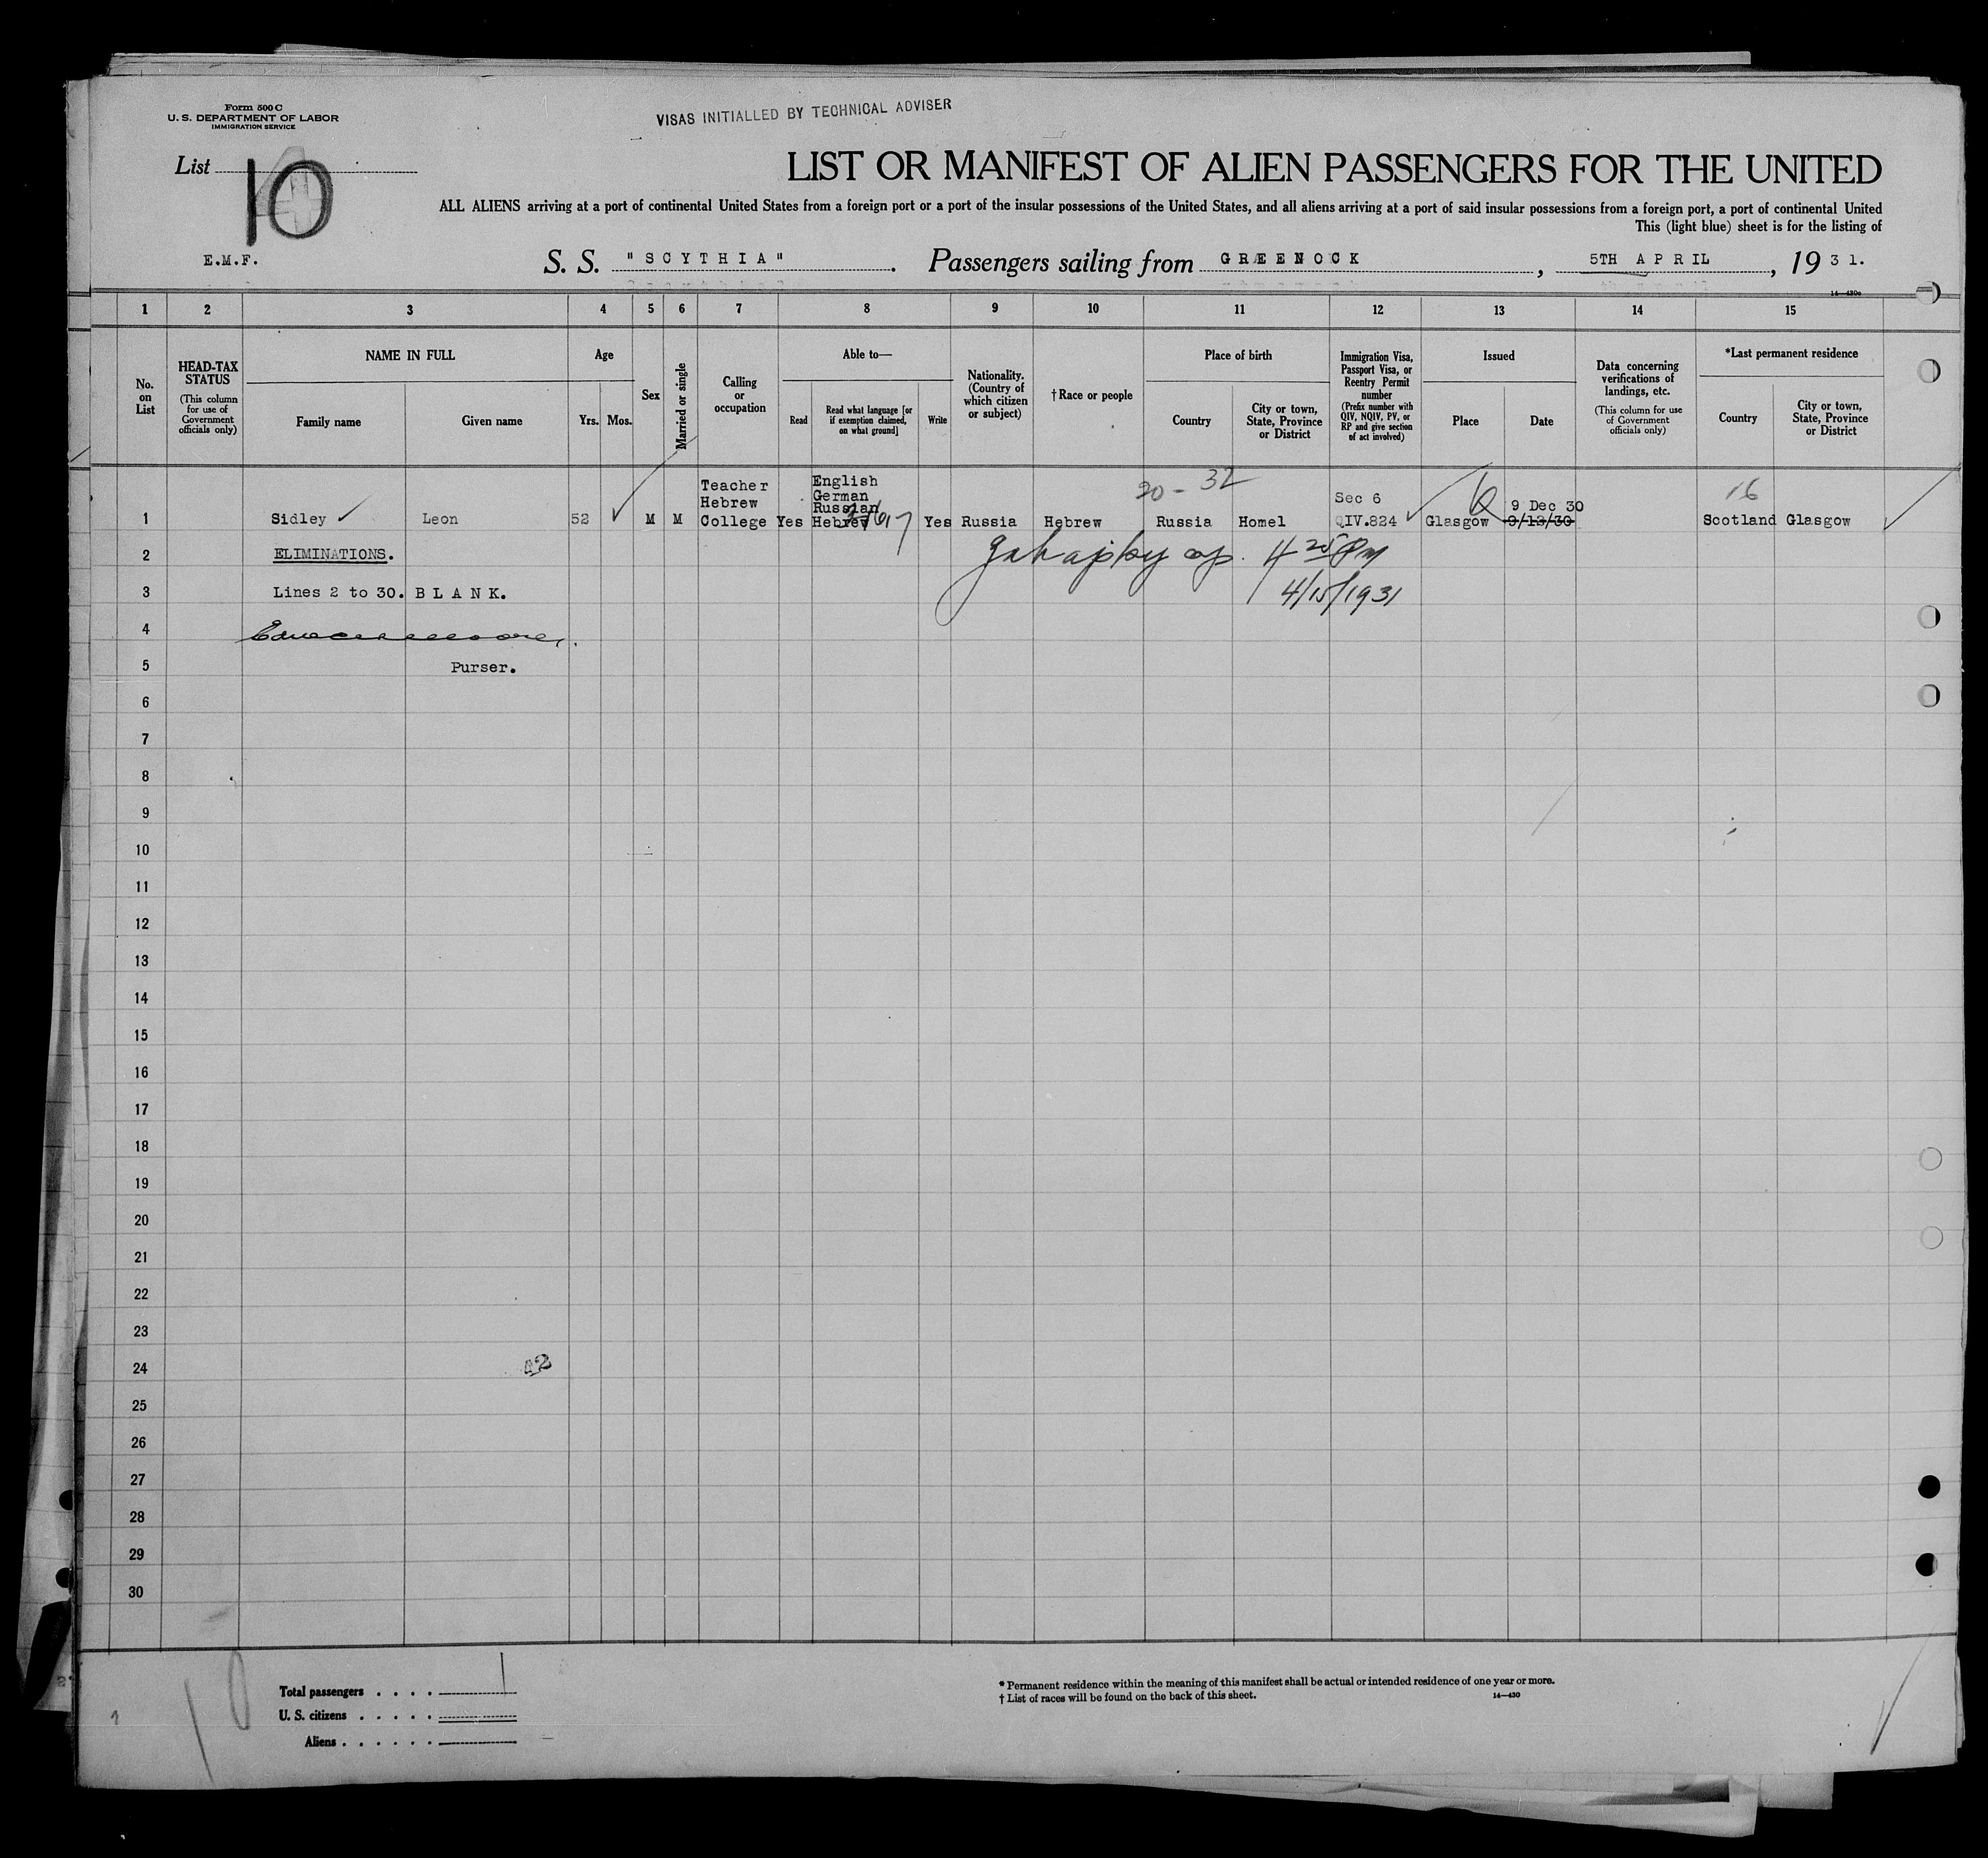 Form 500 C
U. S. DEPARTMENT OF LABOR
IMMIGRATION SERVICE
VISAS INITIALLED BY TECHNICAL ADVISER
List 10
LIST OR MANIFEST OF ALIEN PASSENGERS FOR THE UNITED
ALL ALIENS arriving at a port of continental United States from a foreign port or a port of the insular possessions of the United States, and all aliens arriving at a port of said insular possessions from a foreign port, a port of continental United
This (light blue) sheet is for the listing of
E.M.F.
S. S. "SCYTHIA". Passengers sailing from GREENOCK, 5TH APRIL, 1931.
1 2 3 4 5 6 7 8 9 10 11 12 13 14 15
No. on List
HEAD-TAX STATUS
(This column for use of Government officials only)
NAME IN FULL
Family name
Given name
Age
Yrs. Mos.
Sex
Married or single
Calling or occupation
Able to—
Read
Read what language [or if exemption claimed, on what ground]
Write
Nationality. (Country of which citizen or subject)
†Race or people
Place of birth
Country
City or town, State, Province or District
Immigration Visa, Passport Visa, or Reentry Permit number
(Prefix number with QIV, NQIV, PV, or RP and give section of act involved)
Issued
Place
Date
Data concerning verifications of landings, etc.
(This column for use of Government officials only)
*Last permanent residence
Country
City or town, State, Province or District
20 - 32
16
1 Sidley Leon 52 M M Teacher Hebrew College Yes English German Russian Hebrew Yes Russia Hebrew Russia Homel Sec 6 QIV.824 Glasgow 9 Dec 30 9/12/30 Scotland Glasgow
2 ELIMINATIONS.
4 25 PM
3 Lines 2 to 30. BLANK.
4/15/1931
4
5 Purser.
6
7
8
9
10
11
12
13
14
15
16
17
18
19
20
21
22
23
24
42
25
26
27
28
29
30
10
Total passengers . . . . 1
U. S. citizens . . . . .
Aliens . . . . . .
* Permanent residence within the meaning of this manifest shall be actual or intended residence of one year or more.
† List of races will be found on the back of this sheet.
14—430